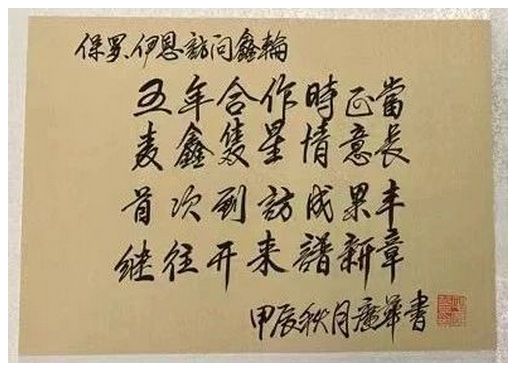 保罗、伊恩訪问鑫輪
五年合作時正當
麦鑫隻星情意長
首次到訪成果丰
继往开来譜新章
甲辰秋月广华書